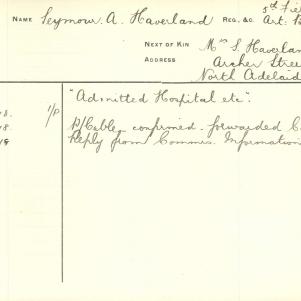 NAME Seymour. A. Haverland REG., &C. 5th Fie
Art. B
NEXT OF KIN Mrs S. Haverlan
ADDRESS Archer Stree
North Adelaid
1/P "Admitted Hospital etc".
8. P/Cable confirmed. forwarded C
18. Reply from Commrs. Information